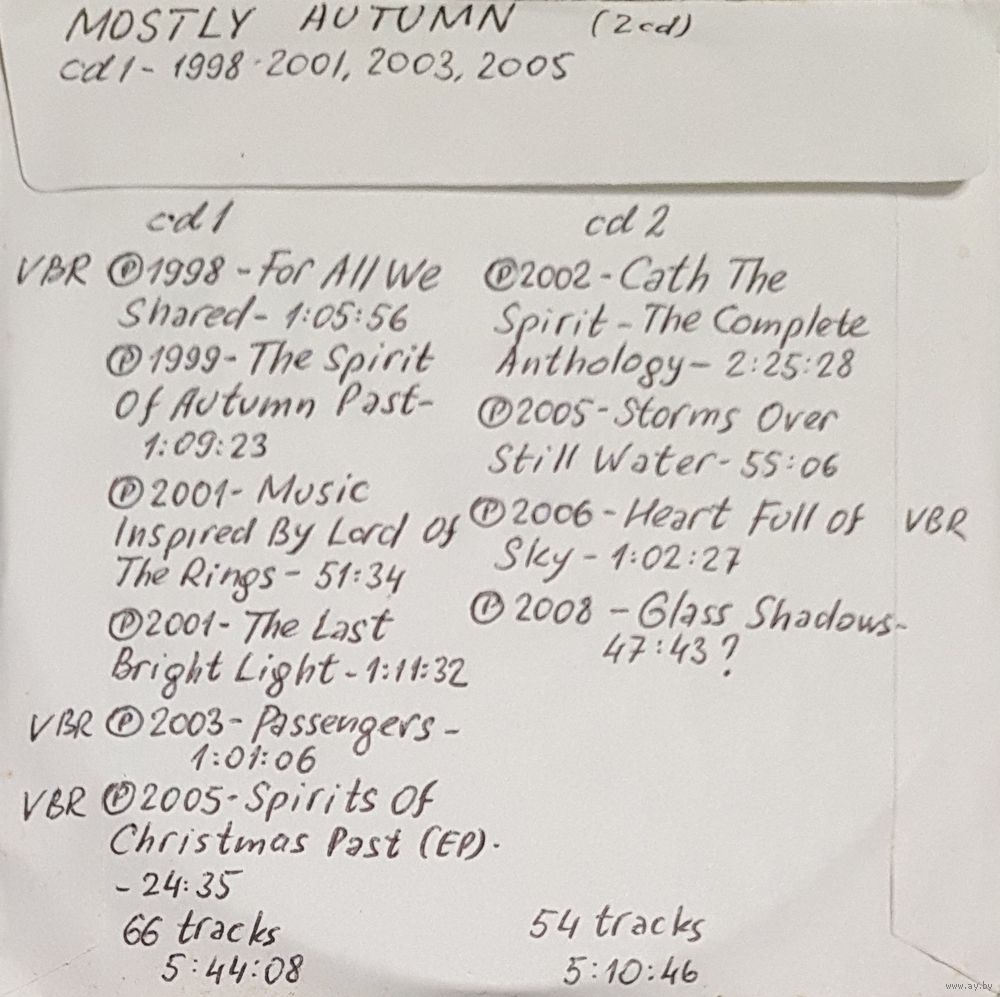 MOSTLY AUTUMN (2cd)
cd1 - 1998-2001, 2003, 2005
cd1
VBR Ⓟ1998 - For All We
Shared - 1:05:56
Ⓟ1999 - The Spirit
Of Autumn Past -
1:09:23
Ⓟ2001 - Music
Inspired By Lord Of
The Rings - 51:34
Ⓟ2001 - The Last
Bright Light - 1:11:32
VBR Ⓟ2003 - Passengers -
1:01:06
VBR Ⓟ2005 - Spirits Of
Christmas Past (EP).
- 24:35
66 tracks
5:44:08
cd 2
Ⓟ2002 - Cath The
Spirit - The Complete
Anthology - 2:25:28
Ⓟ2005 - Storms Over
Still Water - 55:06
Ⓟ2006 - Heart Full Of VBR
Sky - 1:02:27
Ⓟ2008 - Glass Shadows -
47:43?
54 tracks
5:10:46
www.ay.by